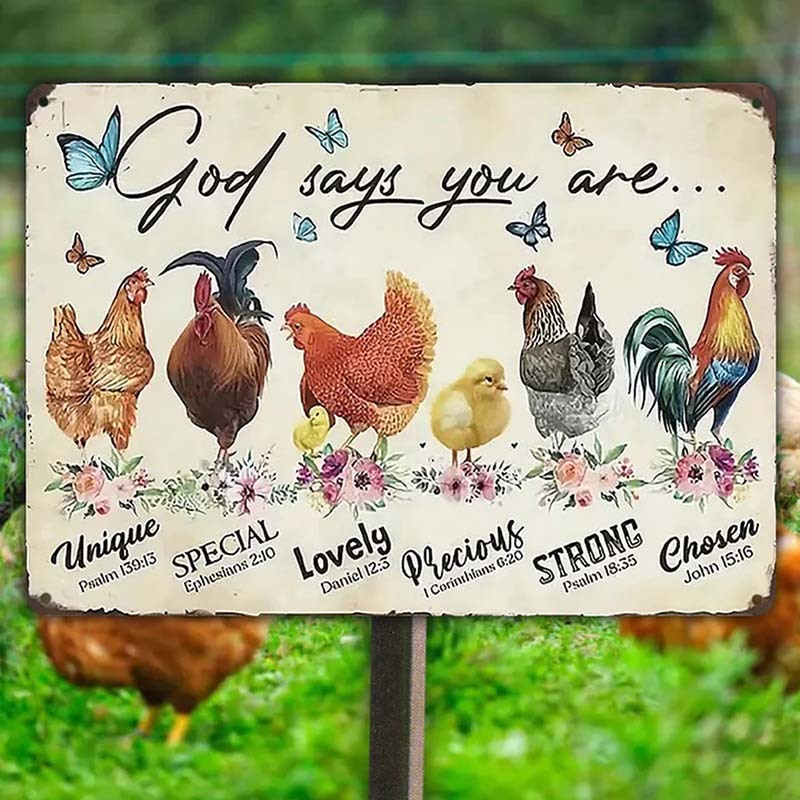 God says you are...
Unique
Psalm 139:13
SPECIAL
Ephesians 2:10
Lovely
Daniel 12:3
Precious
1 Corinthians 6:20
STRONG
Psalm 18:35
Chosen
John 15:16